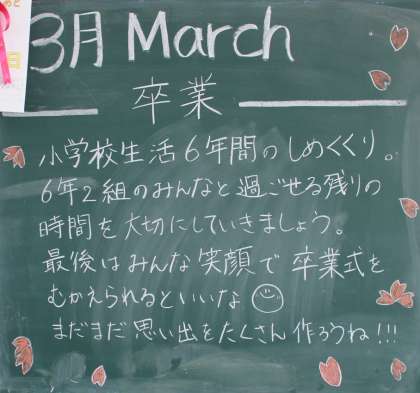 3月 March
卒業
小学校生活6年間のしめくくり。
6年2組のみんなと過ごせる残りの
時間を大切にしていきましょう。
最後はみんな笑顔で卒業式を
むかえられるといいな
まだまだ思い出をたくさん作ろうね!!!